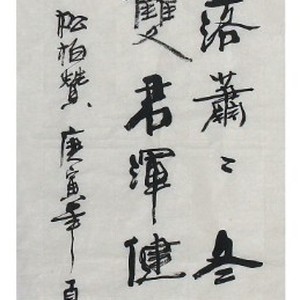 落蕭〻叁
雙君渾健
松柏贊 庚寅年夏